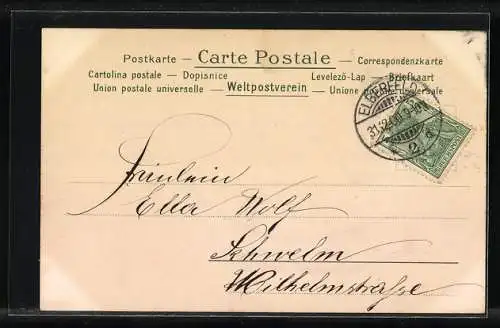 Postkarte — Carte Postale — Correspondenzkarte
Cartolina postale — Dopisnice Levelező-Lap — Briefkaart
Union postale universelle — Weltpostverein — Unione postale universale
ELBERFELD
31.12.
2 a
Fräulein
Ella Wolf
Schwelm
Wilhelmstraße